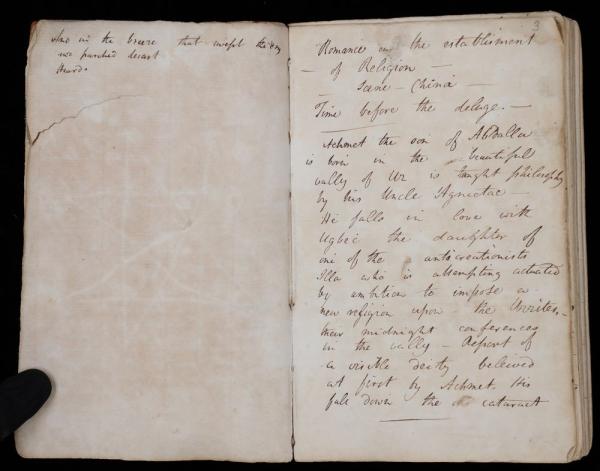 And in the breeze that swept the
parched desart
Heard.
3
Romance on the establisment
— of Religion —
— Scene – China —
Time before the deluge. —
Achmet the son of Abdalla
is born in the beautiful
vally of Ur is taught philosophy
by his Uncle
He falls in love with
the daughter of
one of the anticreationists
Illa who is attempting actuated
by ambition to impose a
new religion upon the Urites. –
their midnight conferences
in the vally – Report of
a visible deity beleived
at first by Achmet. His
fall down the cataract